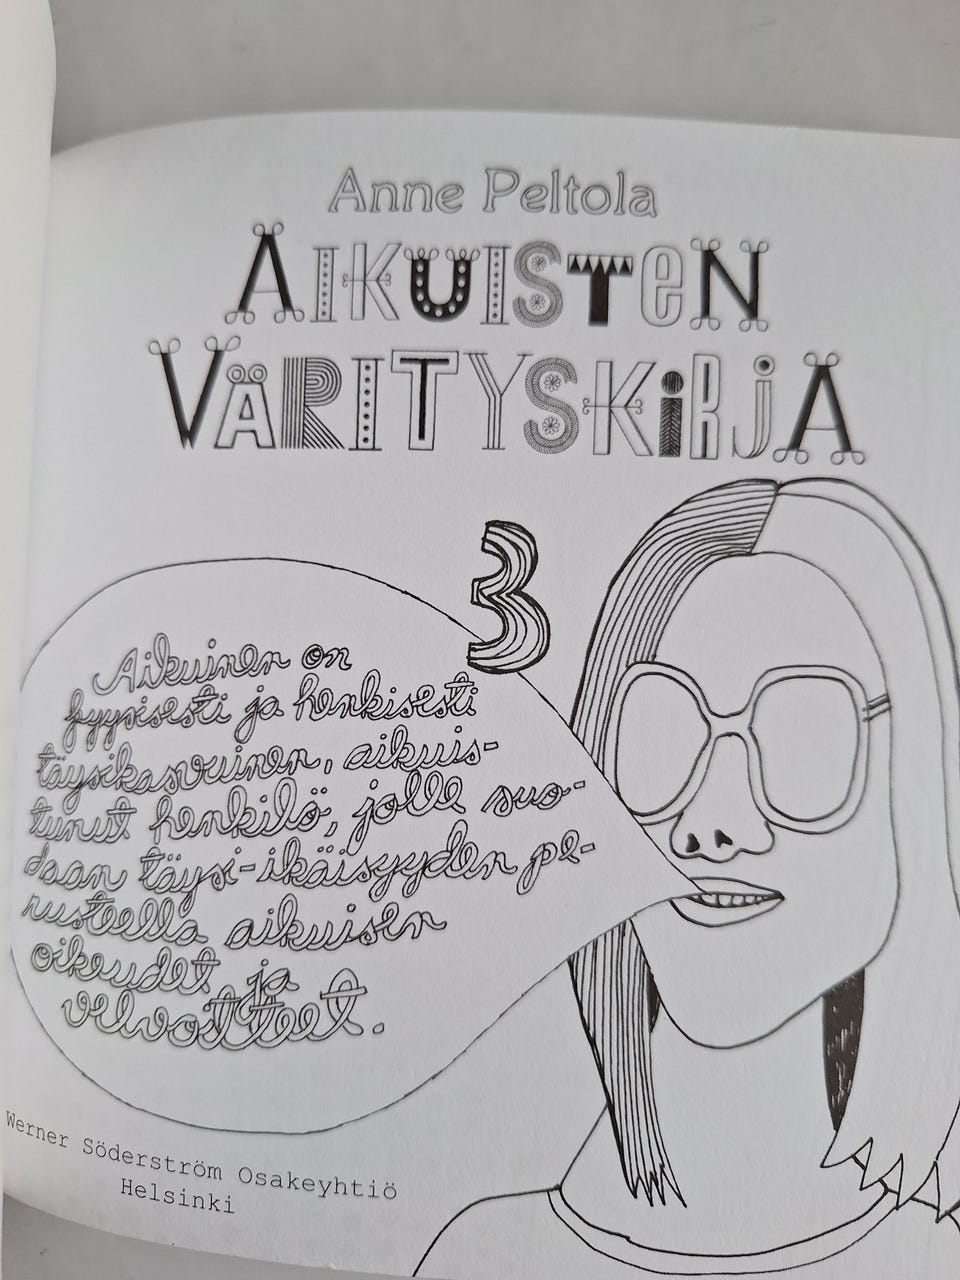 Anne Peltola
AIKUISTEN
VÄRITYSKIRJA
3
Aikuinen on
fyysisesti ja henkisesti
täysikasvuinen, aikuis-
tunut henkilö, jolle suo-
daan täysi-ikäisyyden pe-
rusteella aikuisen
oikeudet ja
velvoitteet.
Werner Söderström Osakeyhtiö
Helsinki